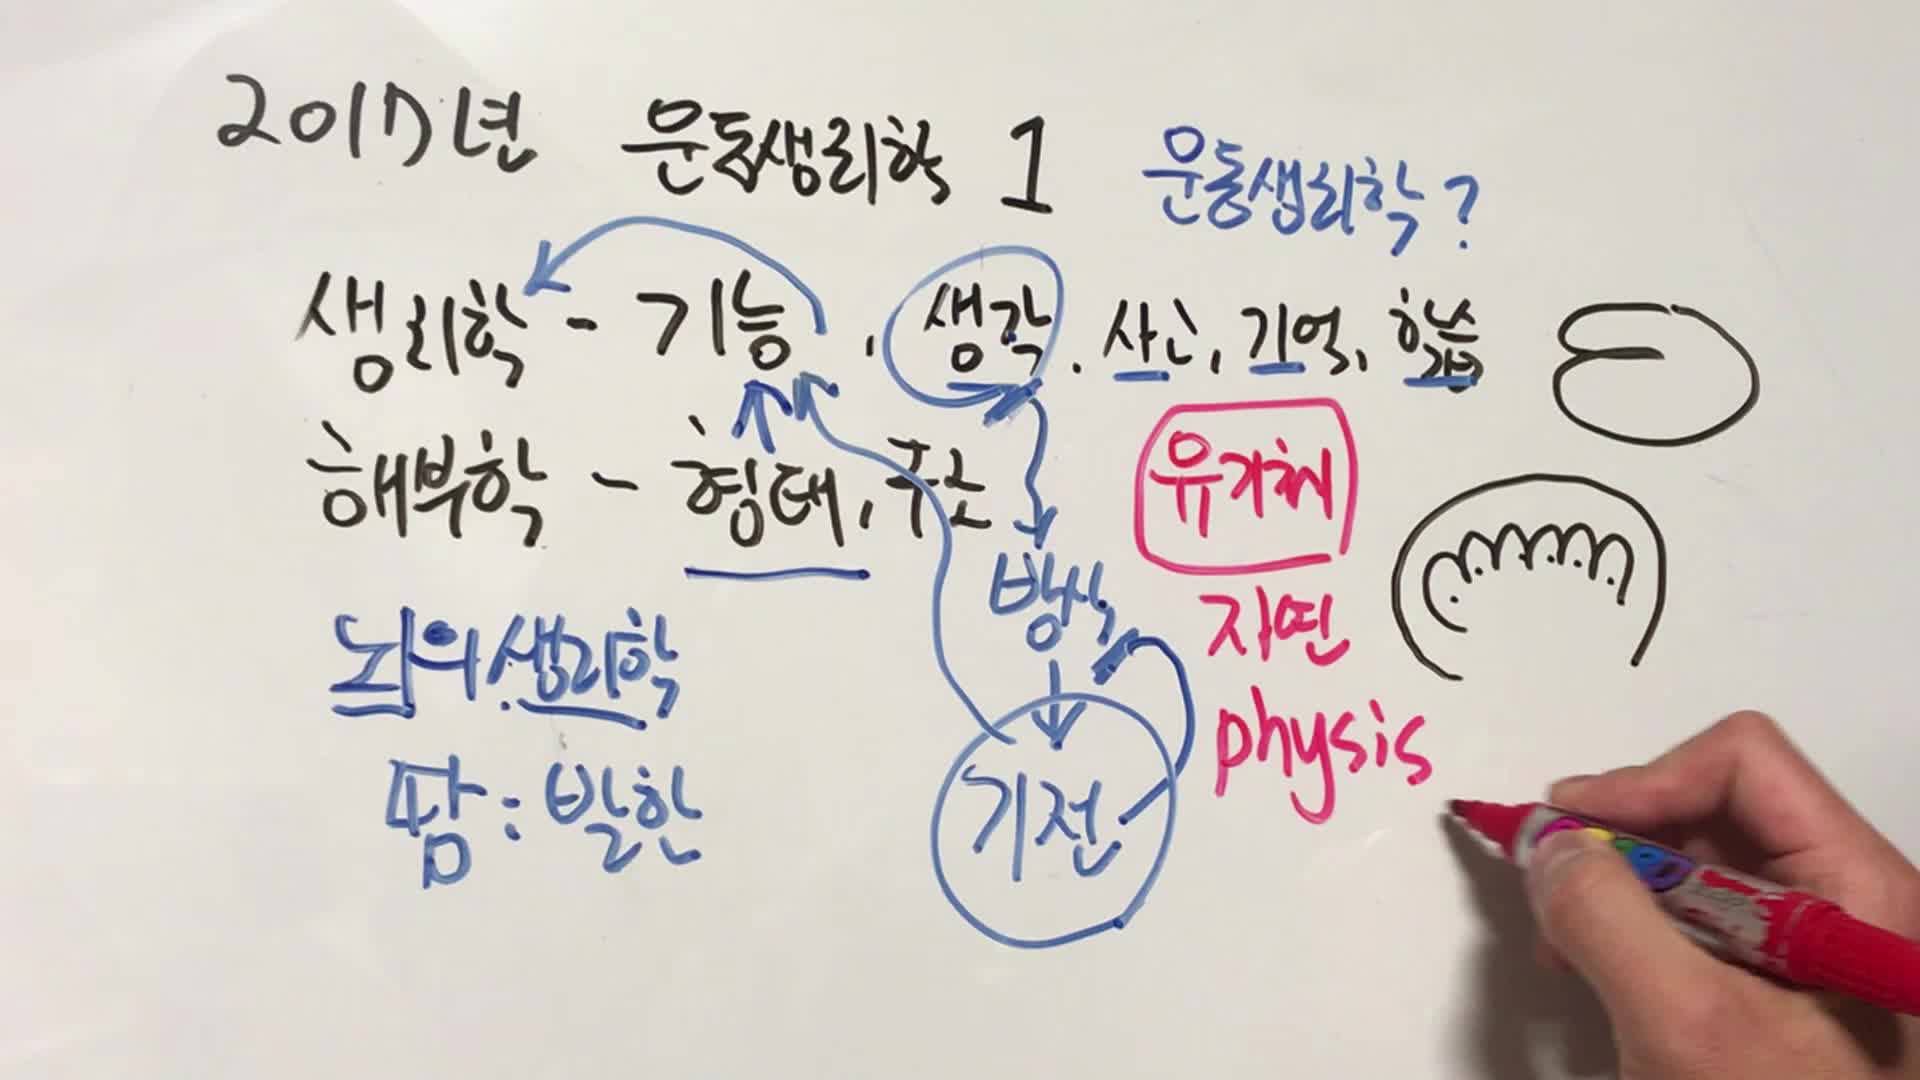 2017년 운동생리학 1 운동생리학?
생리학 - 기능, 생각, 사고, 기억, 학습
해부학 - 형태, 구조
유기체
방식
뇌의 생리학
자연
physis
땀 : 발한
기전